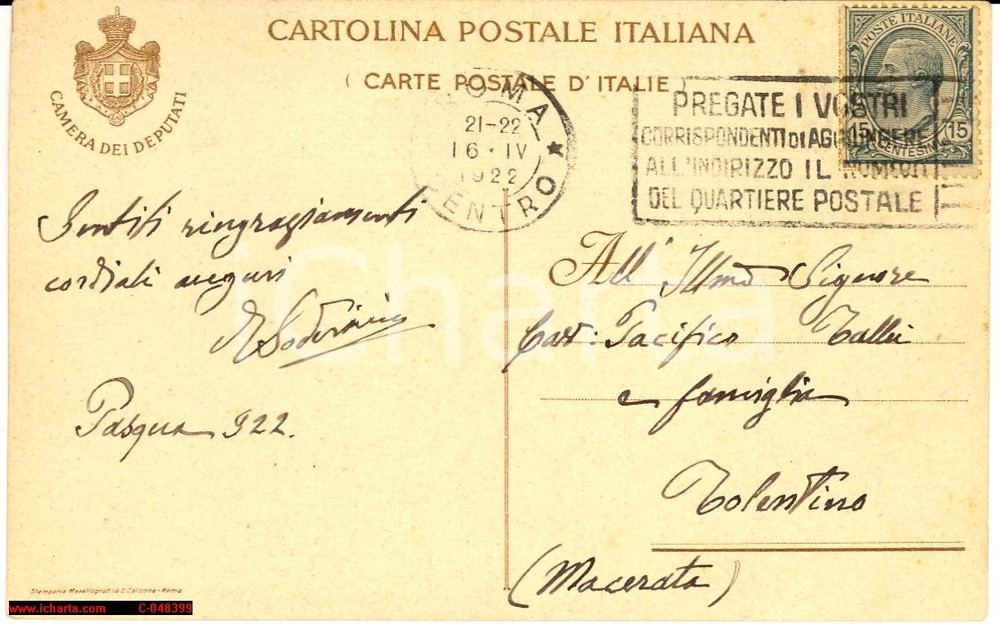 CARTOLINA POSTALE ITALIANA
( CARTE POSTALE D'ITALIE )
CAMERA DEI DEPUTATI
POSTE ITALIANE
15 CENTESIMI 15
ROMA CENTRO
21-22
16·IV
1922
PREGATE I VOSTRI
CORRISPONDENTI DI AGGIUNGERE
ALL'INDIRIZZO IL NUMERO
DEL QUARTIERE POSTALE
Sentiti ringraziamenti
cordiali auguri
Pasqua 922.
All' Illmo Signore
Cav: Pacifico
e famiglia
Tolentino
(Macerata)
Roma
iCharta
www.icharta.com C-048399